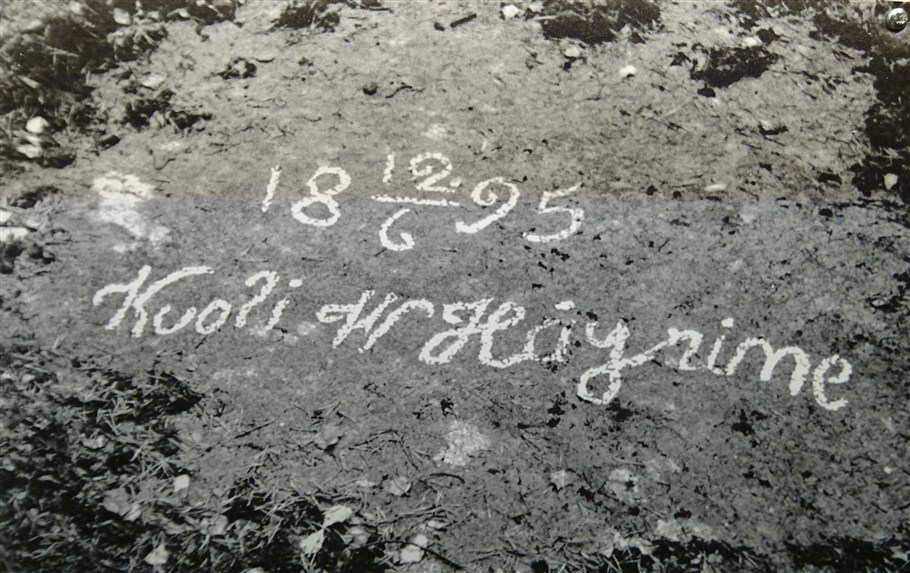 18 12/6 95
Kuoli W Häyrime